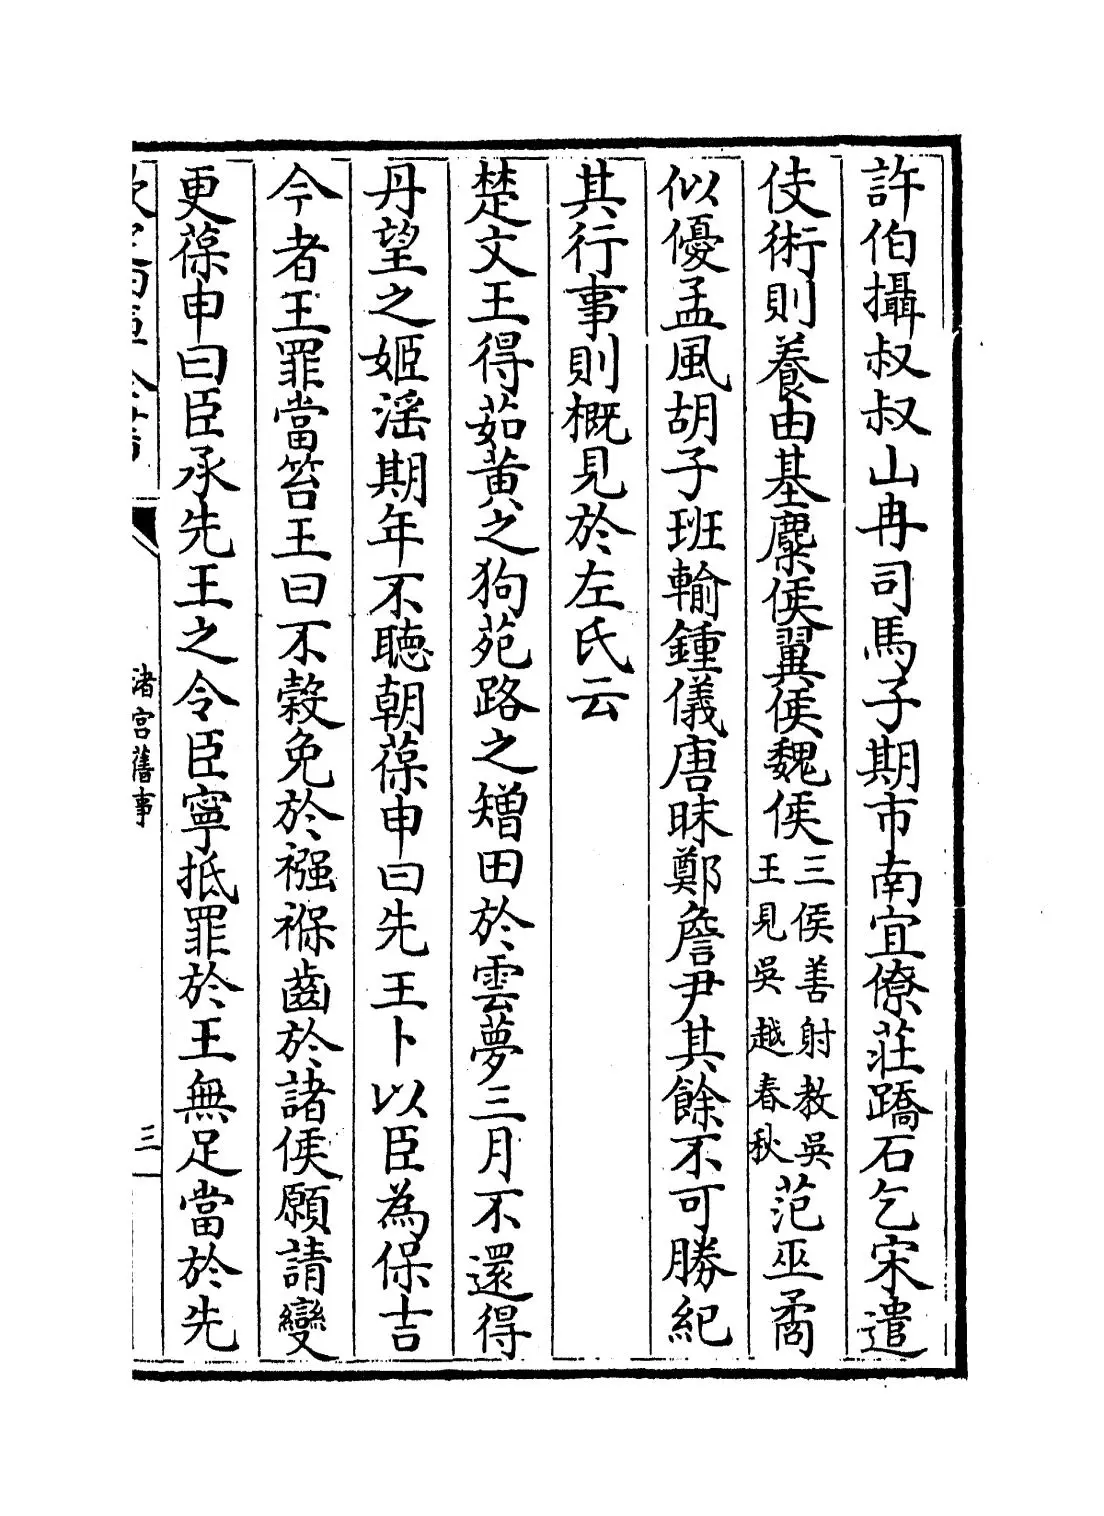 許伯攝叔叔山冉司馬子期市南宜僚莊蹻石乞宋遣
伎術則養由基麋侯翼侯魏侯三侯善射教吳王見吳越春秋范巫矞
似優孟風胡子班輸鍾儀唐昧鄭詹尹其餘不可勝紀
其行事則概見於左氏云
楚文王得茹黄之狗苑路之矰田於雲夢三月不還得
丹望之姬滛期年不聽朝葆申曰先王卜以臣為保吉
今者王罪當笞王曰不穀免於襁褓齒於諸侯願請變
更葆申曰臣承先王之令臣寧抵罪於王無足當於先
渚宮舊事
三